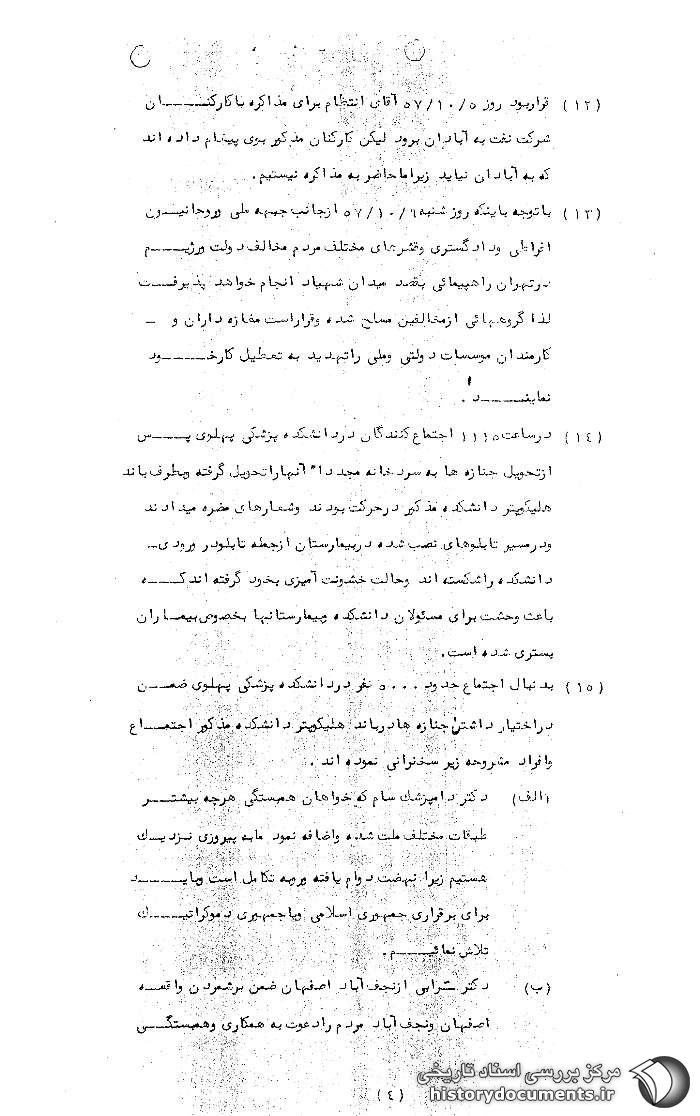 (۱۲) قراربود روز ۵۷/۱۰/۵ آقای انتظام برای مذاکره باکارکنـــــان
شرکت نفت به آبادان برود لیکن کارکنان مذکور بوی پیغام داده اند
که به آبادان نیاید زیراماحاضر به مذاکره نیستیم.
(۱۳) باتوجه باینکه روز شنبه ۵۷/۱۰/۶ ازجانب جبهه ملی وروحانیـــون
افراطی ودادگستری وقشرهای مختلف مردم مخالف دولت ورژیـــــم
درتهران راهپیمائی بقصد میدان شهیاد انجام خواهد پذیرفـــت
لذا گروههائی ازمخالفین مسلح شده وقراراست مغازه داران و ـ
کارمندان موسسات دولتی وملی راتهدید به تعطیل کارخـــــود
نماینـــــد.
(۱٤) درساعت ۱۱۱۵ اجتماع کنندگان دردانشکده پزشکی پهلوی پــــس
ازتحویل جنازه ها به سردخانه مجددا" آنهاراتحویل گرفته وبطرف باند
هلیکوپتر دانشکده مذکور درحرکت بودند وشعارهای مضره میدادند
ودرمسیر تابلوهای نصب شده دربیمارستان ازجمله تابلودر ورودی ـ
دانشکده راشکسته اند وحالت خشونت آمیزی بخود گرفته اندکـــه
باعث وحشت برای مسئولان دانشکده وبیمارستانها بخصوص بیمـاران
بستری شده است.
(۱۵) بدنبال اجتماع حدود ۵۰۰۰ نفر دردانشکده پزشکی پهلوی ضمـــن
دراختیار داشتن جنازه هادرباند هلیکوپتر دانشکده مذکور اجتمـــاع
وافراد مشروحه زیر سخنرانی نموده اند.
(الف) دکتر دامپزشك سام که خواهان همبستگی هرچه بیشتـــر
طبقات مختلف ملت شده واضافه نمود مابه پیروزی نزدیـــك
هستیم زیرا نهضت دوام یافته وروبه تکامل است وبایـــــد
برای برقراری جمهوری اسلامی ویاجمهوری دموکراتیـــــك
تلاش نمائیـــــم.
(ب) دکتر ازنجف آباد اصفهان ضمن برشمردن واقعـــه
اصفهان ونجف آباد مردم رادعوت به همکاری وهمبستگـــی
(٤)
مرکز بررسی اسناد تاریخی
historydocuments.ir